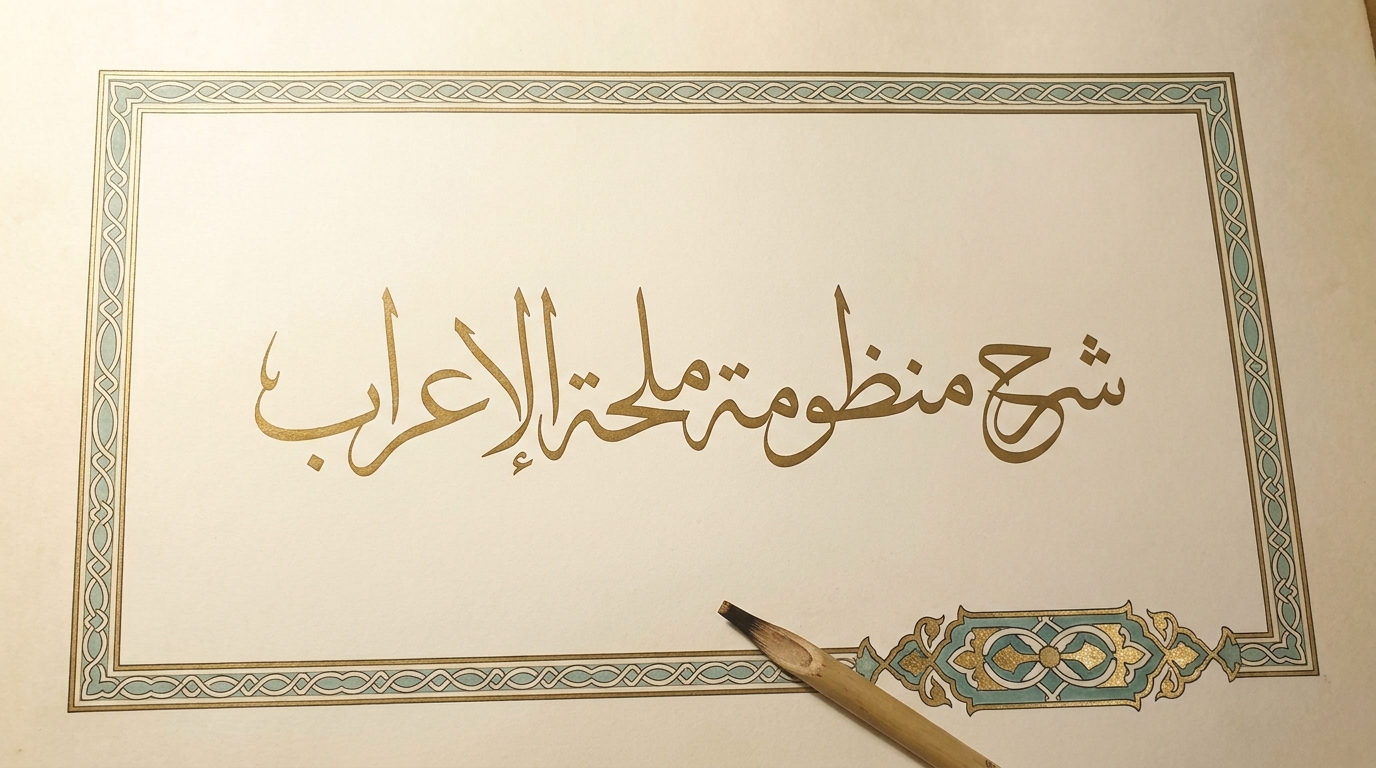 شرح منظومة ملحة الإعراب